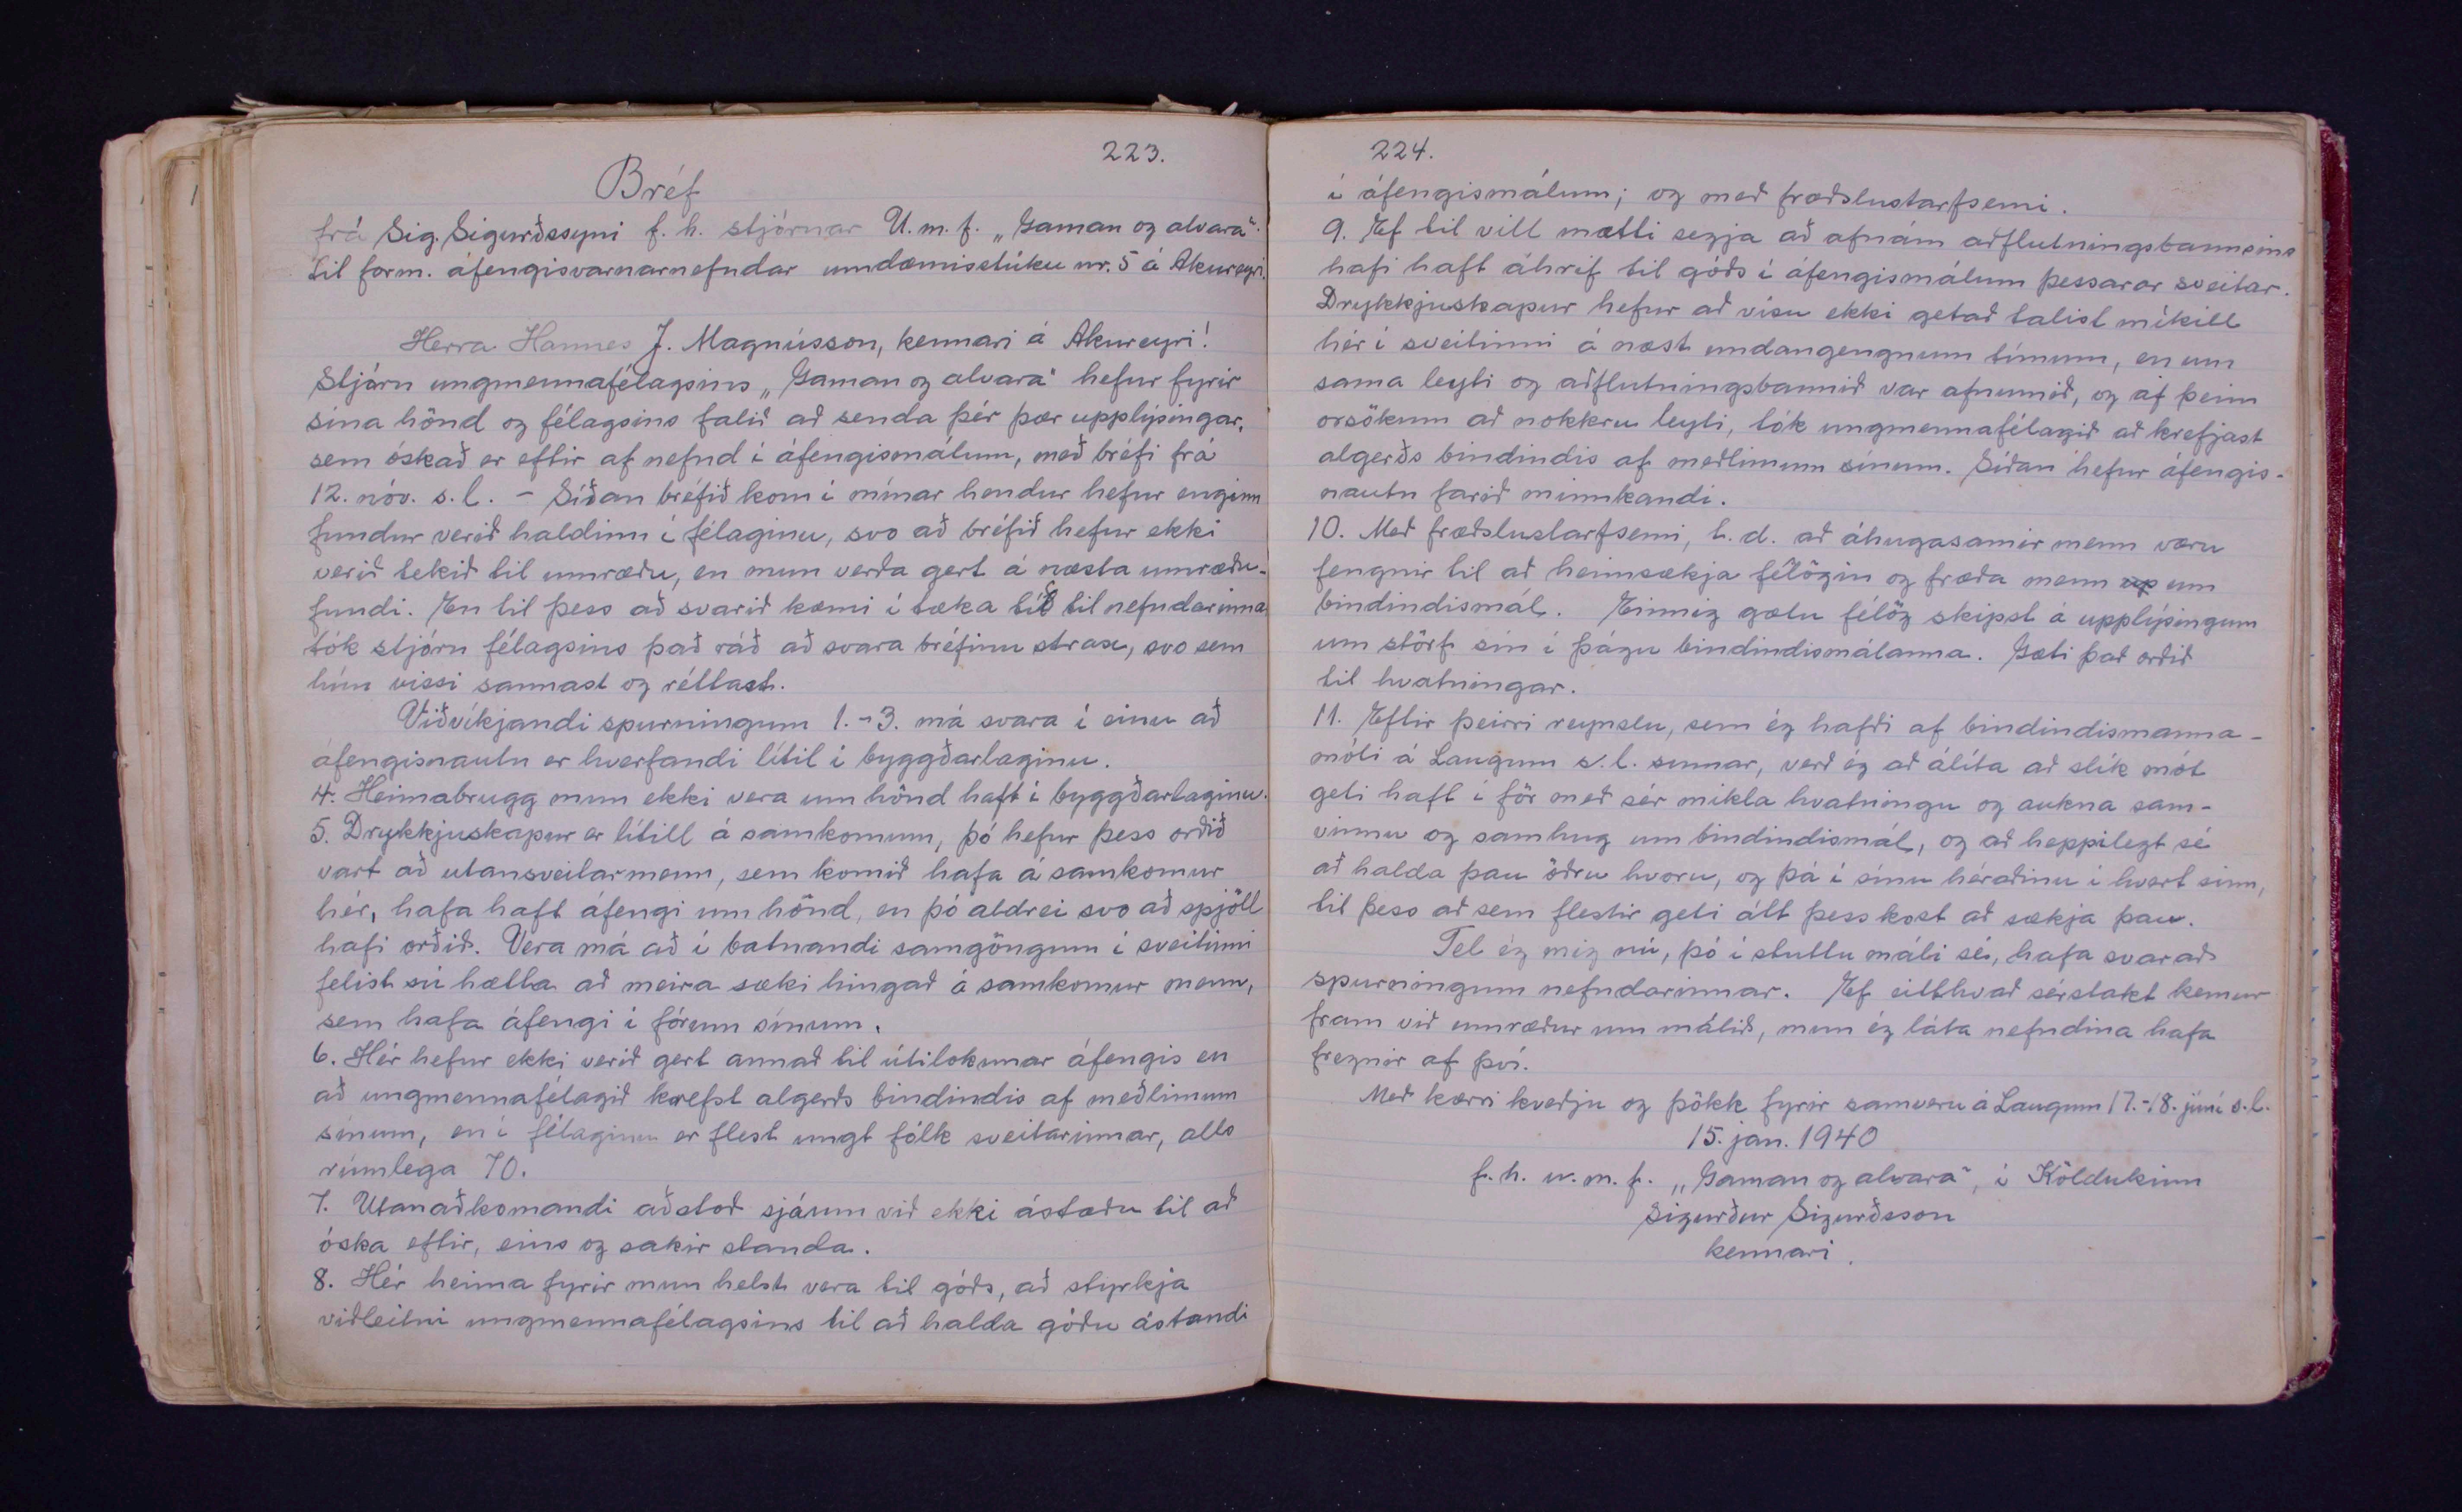 223.
Bréf
frá Sig. Sigurðssyni f. h. stjórnar U. m. f. „Gaman og alvara".
til form. áfengisvarnarnefndar umdæmisstúku nr. 5 á Akureyri.
Herra Hannes J. Magnússon, kennari á Akureyri!
Stjórn ungmennafélagsins „Gaman og alvara" hefur fyrir
sína hönd og félagsins falið að senda þér þær upplýsingar,
sem óskað er eftir af nefnd í áfengismálum, með bréfi frá
12. nóv. s.l. - Síðan bréfið kom í mínar hendur hefur enginn
fundur verið haldinn í félaginu, svo að bréfið hefur ekki
verið tekið til umræðu, en mun verða gert á næsta umræðu-
fundi. En til þess að svarið kæmi í tæka tíð til nefndarinnar
tók stjórn félagsins það ráð að svara bréfinu strax, svo sem
hún vissi sannast og réttast.
Viðvíkjandi spurningum 1.-3. má svara í einu að
áfengisnautn er hverfandi lítil í byggðarlaginu.
4. Heimabrugg mun ekki vera um hönd haft í byggðarlaginu.
5. Drykkjuskapur er lítill á samkomum, þó hefur þess orðið
vart að utansveitarmenn, sem komið hafa á samkomur
hér, hafa haft áfengi um hönd, en þó aldrei svo að spjöll
hafi orðið. Vera má að í batnandi samgöngum í sveitinni
felist sú hætta að meira sæki hingað á samkomur menn,
sem hafa áfengi í fórum sínum.
6. Hér hefur ekki verið gert annað til útilokunar áfengis en
að ungmennafélagið krefst algerðs bindindis af meðlimum
sínum, en í félaginu er flest ungt fólk sveitarinnar, alls
rúmlega 70.
7. Utanaðkomandi aðstoð sjáum við ekki ástæðu til að
óska eftir, eins og sakir standa.
8. Hér heima fyrir mun helst vera til góðs, að styrkja
viðleitni ungmennafélagsins til að halda góðu ástandi
224.
í áfengismálum; og með fræðslustarfsemi.
9. Ef til vill mætti segja að afnám aðflutningsbannsins
hafi haft áhrif til góðs í áfengismálum þessarar sveitar.
Drykkjuskapur hefur að vísu ekki getað talist mikill
hér í sveitinni á næst undangengnum tímum, en um
sama leyti og aðflutningsbannið var afnumið, og af þeim
orsökum að nokkru leyti, tók ungmennafélagið að krefjast
algerðs bindindis af meðlimum sínum. Síðan hefur áfengis-
nautn farið minnkandi.
10. Með fræðslustarfsemi, t. d. að áhugasamir menn væru
fengnir til að heimsækja félögin og fræða menn up um
bindindismál. Einnig gætu félög skipst á upplýsingum
um störf sín í þágu bindindismálanna. Gæti það orðið
til hvatningar.
11. Eftir þeirri reynslu, sem ég hafði af bindindismanna-
móti á Laugum s.l. sumar, verð ég að álíta að slík mót
geti haft í för með sér mikla hvatningu og aukna sam-
vinnu og samhug um bindindismál, og að heppilegt sé
að halda þau öðru hvoru, og þá í sínu héraðinu í hvert sinn,
til þess að sem flestir geti átt þess kost að sækja þau.
Tel ég mig nú, þó í stuttu máli sé, hafa svarað
spurningum nefndarinnar. Ef eitthvað sérstakt kemur
fram við umræður um málið, mun ég láta nefndina hafa
fregnir af því.
Með kærri kveðju og þökk fyrir samveru á Laugum 17.-18. júní s.l.
15. jan. 1940
f. h. u. m. f. „Gaman og alvara", í Köldukinn
Sigurður Sigurðsson
kennari.